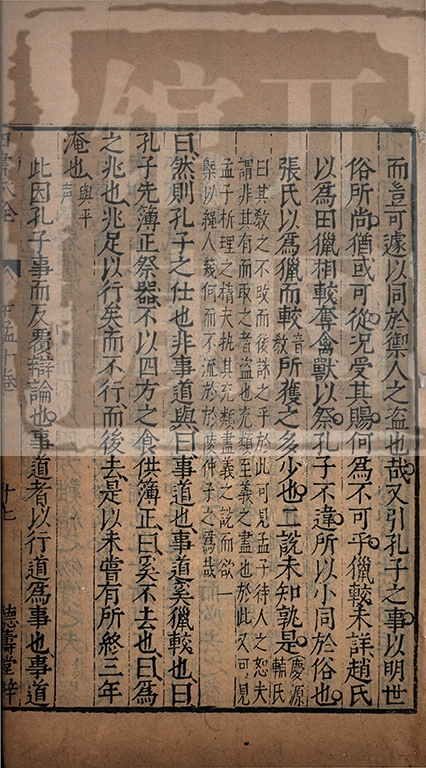 而豈可遽以同於禦人之盜也哉又引孔子之事以明世
俗所尚猶或可從況受其賜何為不可乎獵較未詳趙氏
以為田獵相較奪禽獸以祭孔子不違所以小同於俗也
張氏以為獵而較音教所獲之多少也二說未知孰是慶源輔氏
曰其教之不改而後誅之乎於此可見孟子待人之恕夫
謂非其有而取之者盜也充類至義之盡也於此又可見
孟子析理之精夫執其充類盡義之說而欲一
槩以繩人幾何而不流於於陵仲子之為哉
曰然則孔子之仕也非事道與曰事道也事道奚獵較也曰
孔子先簿正祭器不以四方之食供簿正曰奚不去也曰為
之兆也兆足以行矣而不行而後去是以未嘗有所終三年
淹也與平聲
此因孔子事而反覆辯論也事道者以行道為事也事道
下孟十卷
十七
德壽堂梓